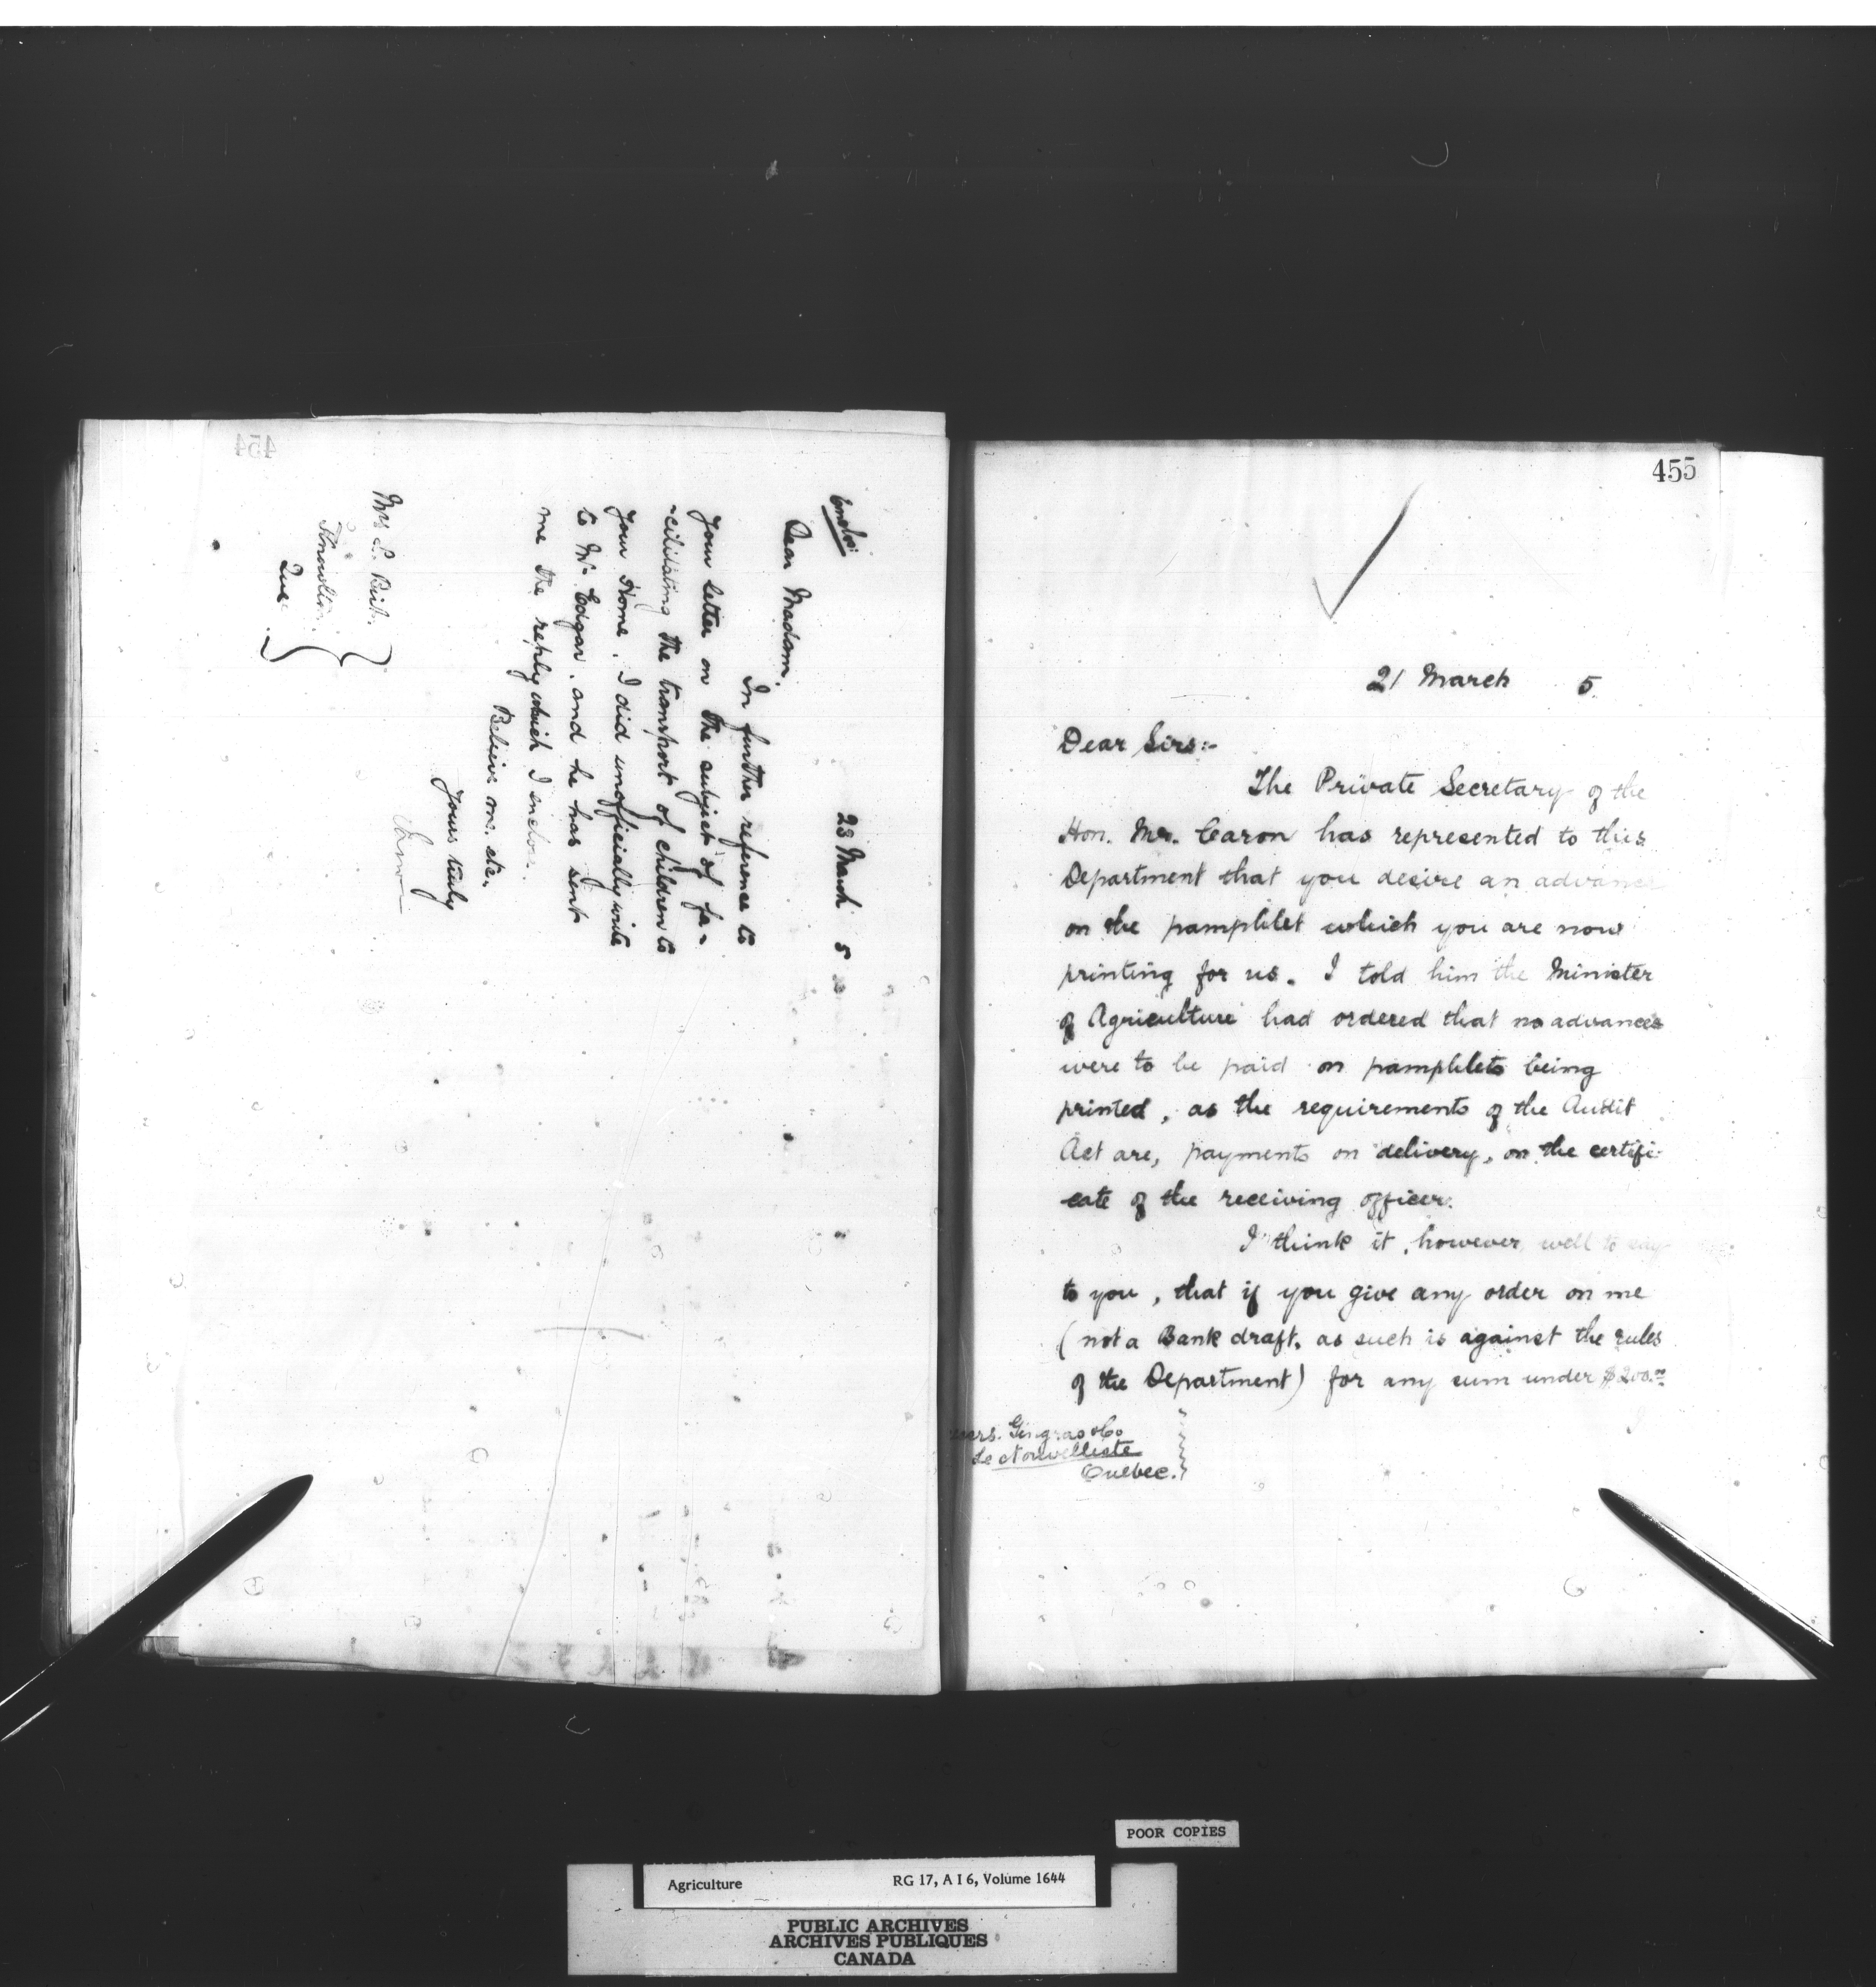 454
Enclos:
23 March 5
Dear Madam.
In further reference to
Your letter on the subject of fa-
-cilitating the transport of children to
Your Home. I did unofficially write
to Mr. Edgar, and he has sent
me the reply which I enclose.
Believe me. etc.
Yours truly
Mrs L.
Knowlton.
Que.
455
21 March 5.
Dear Sirs:-
The Private Secretary of the
Hon. Mr. Caron has represented to this
Department that you desire an advance
on the pamphlet which you are now
printing for us. I told him the Minister
of Agriculture had ordered that no advances
were to be paid on pamphlets being
printed, as the requirements of the Audit
Act are, payments on delivery, on the certifi-
cate of the receiving officer.
I think it, however, well to say
to you, that if you give any order on me
(not a Bank draft, as such is against the rules
of the Department) for any sum under $200.00
I
Gingras & Co
Le Nouvelliste
Quebec.
POOR COPIES
Agriculture RG 17, A I 6, Volume 1644
PUBLIC ARCHIVES
ARCHIVES PUBLIQUES
CANADA